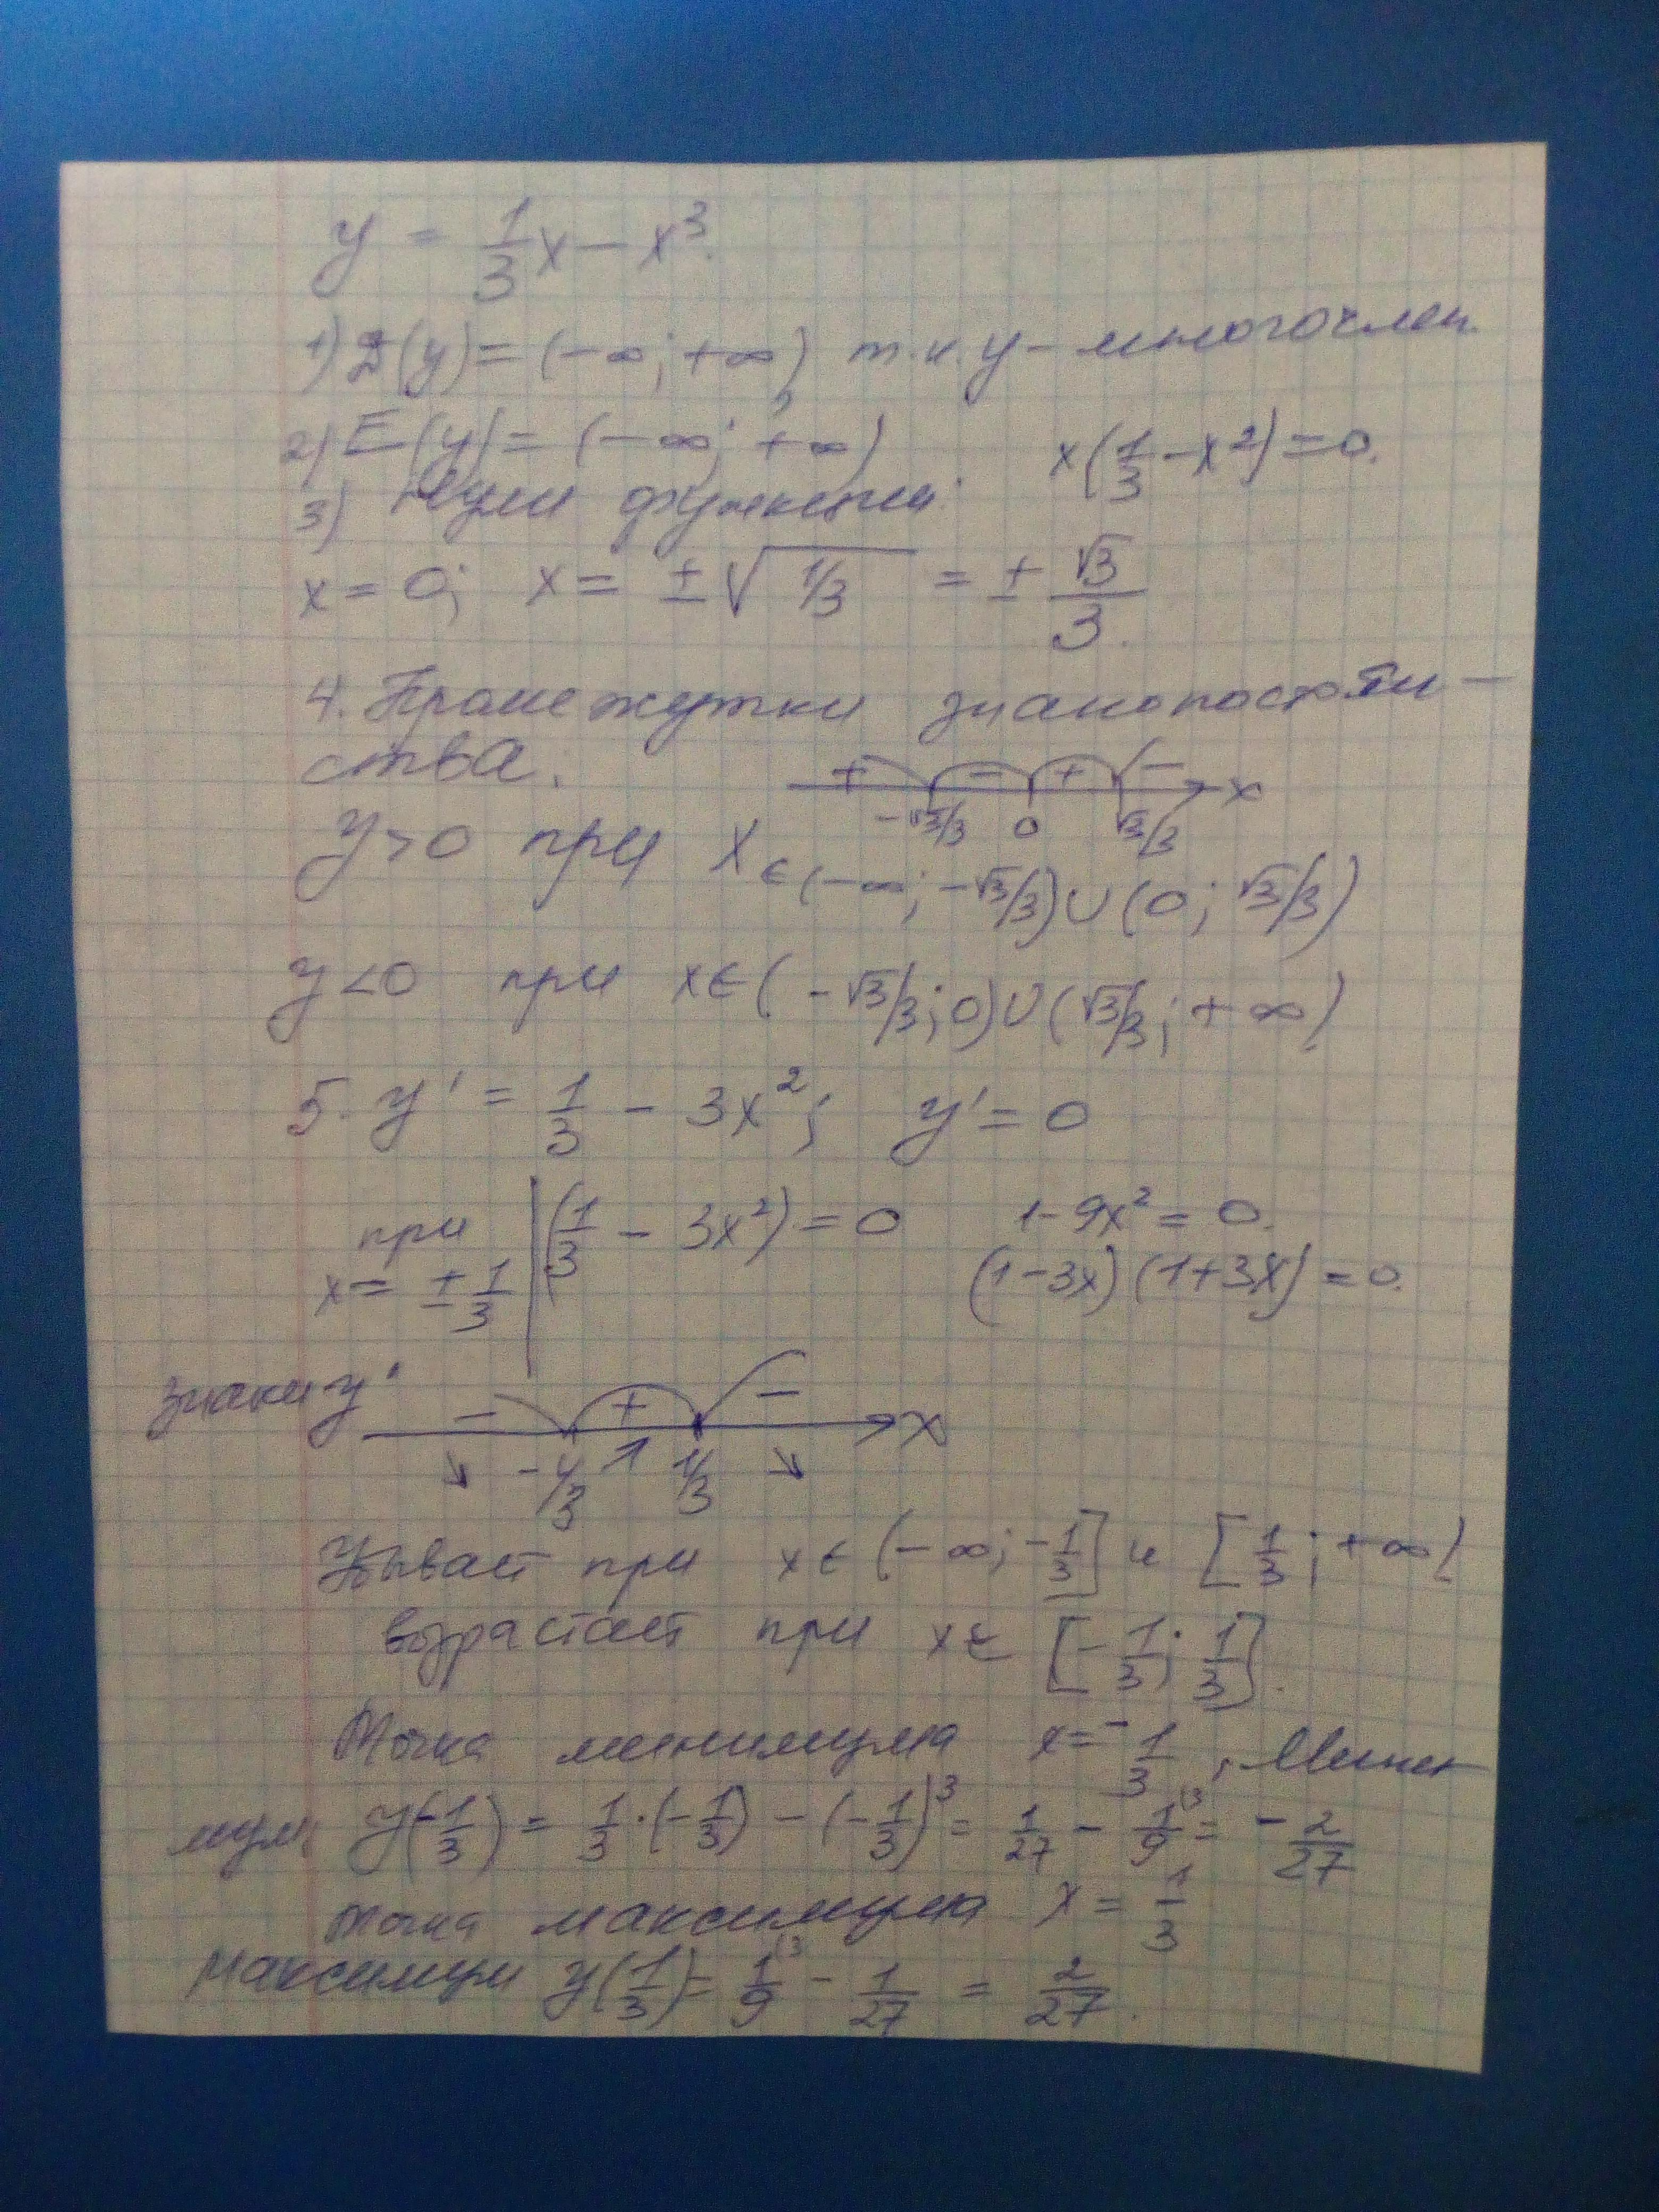 y = 1/3 x − x³.
1) D(y) = (−∞; +∞), т.к. y – многочлен.
2) E(y) = (−∞; +∞)
3) Нули функции: x(1/3 − x²) = 0.
x = 0; x = ±√(1/3) = ± √3/3.
4. Промежутки знакопостоян–
ства.
+ − + − x
−√3/3 0 √3/3
y > 0 при x ∈ (−∞; −√3/3) ∪ (0; √3/3)
y < 0 при x ∈ (−√3/3; 0) ∪ (√3/3; +∞)
5. y' = 1/3 − 3x²; y' = 0
при x = ± 1/3 | (1/3 − 3x²) = 0 1 − 9x² = 0.
(1 − 3x)(1 + 3x) = 0.
знаки y' − + − x
↘ −1/3 ↗ 1/3 ↘
Убывает при x ∈ (−∞; −1/3] и [1/3; +∞)
возрастает при x ∈ [−1/3; 1/3].
Точка минимума x = −1/3, Мини
мум y(−1/3) = 1/3 · (−1/3) − (−1/3)³ = 1/27 − 1/9 ⁽³ = −2/27
точка максимума x = 1/3
Максимум y(1/3) = 1/9 ⁽³ − 1/27 = 2/27.